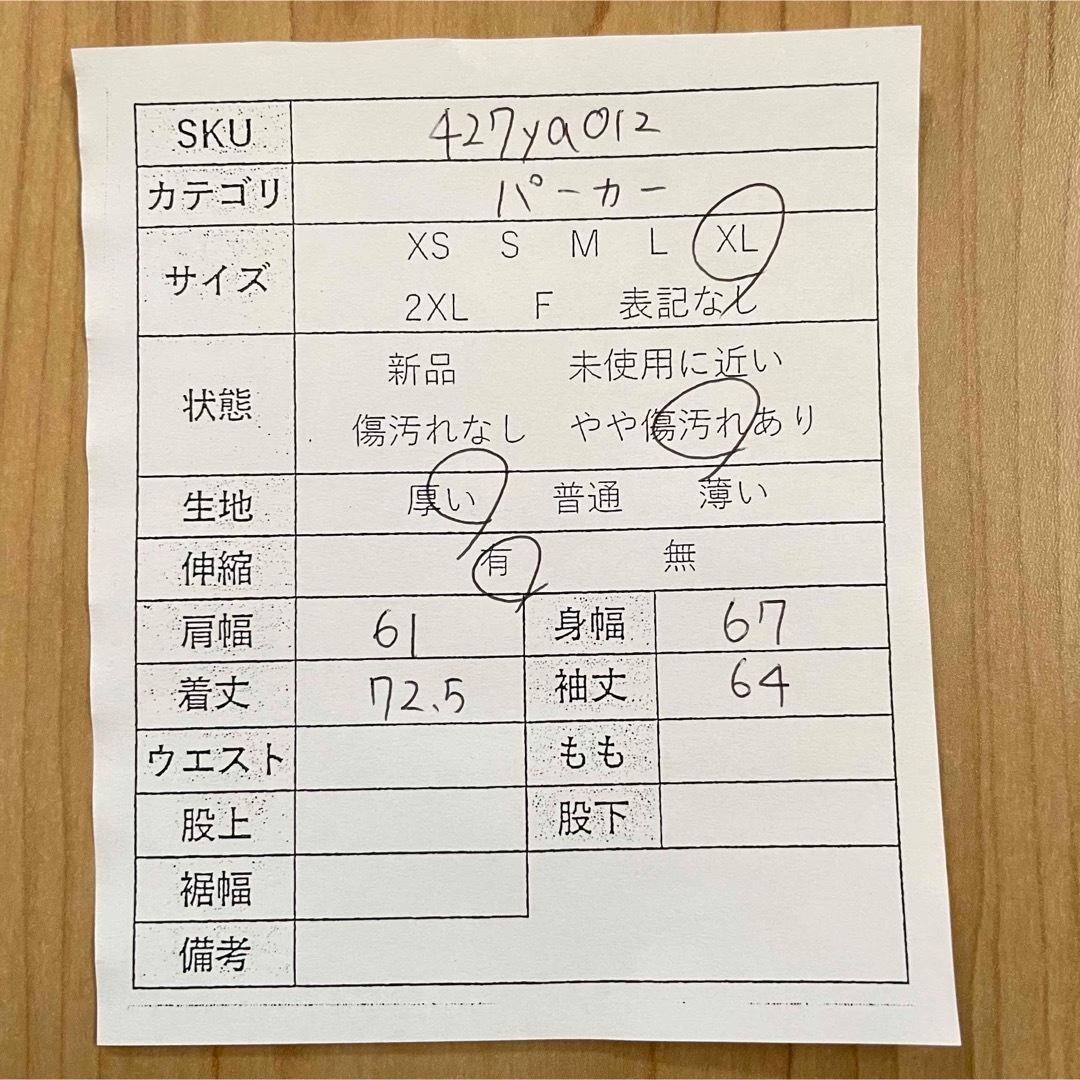 SKU 427ya012
カテゴリ パーカー
サイズ XS S M L XL
2XL F 表記なし
状態 新品 未使用に近い
傷汚れなし やや傷汚れあり
生地 厚い 普通 薄い
伸縮 有 無
肩幅 61 身幅 67
着丈 72.5 袖丈 64
ウエスト もも
股上 股下
裾幅
備考